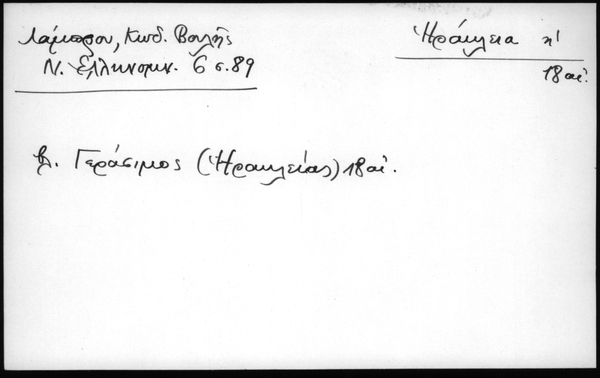 Λάμπρου, Κωδ. Βουλῆς
Ν. Ἑλληνομν. 6 σ. 89
Ἡράκλεια
18 αἰ.
βλ. Γεράσιμος (Ἡρακλείας) 18 αἰ.